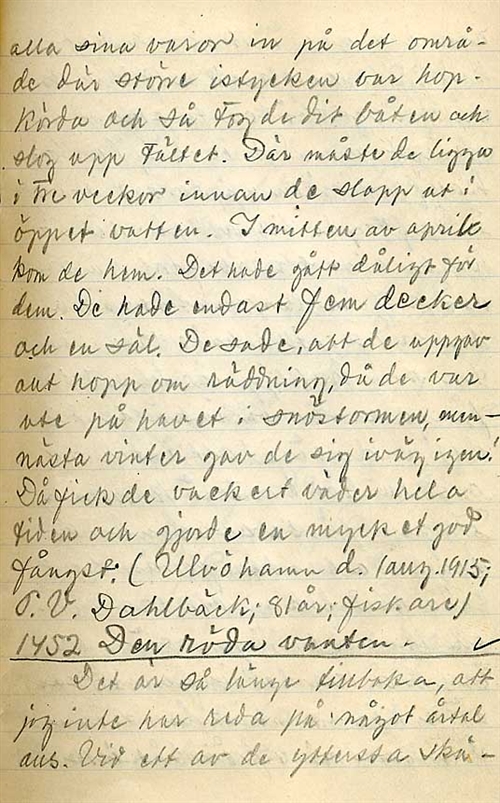 alla sina varor in på det områ-
de där större istycken var hop-
körda och så tog de dit båten och
slog upp tältet. Där måste de ligga
i tre veckor innan de slapp ut i
öppet vatten. I mitten av april
kom de hem. Det hade gått dåligt för
dem. De hade endast fem decker
och en säl. De sade, att de uppgav
allt hopp om räddning, då de var
ute på havet i snöstormen, men-
nästa vinter gav de sig iväg igen!
Då fick de vackert väder hela
tiden och gjorde en mycket god
fångst. (Ulvöhamn d. 1 aug. 1915;
P. V. Dahlbäck; 81 år; fiskare)
1452 Den röda vanten. ✓
Det är så länge tillbaka, att
jag inte har reda på något årtal
alls. Vid ett av de yttersta skä-